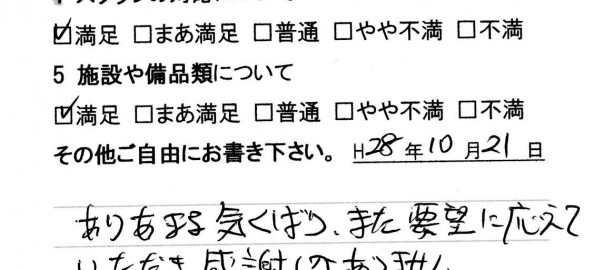 ☑満足 □まあ満足 □普通 □やや不満 □不満
5 施設や備品類について
☑満足 □まあ満足 □普通 □やや不満 □不満
その他ご自由にお書き下さい。 H28年10月21日
ありあまる気くばり、また要望に応えて
いただき感謝しかありません